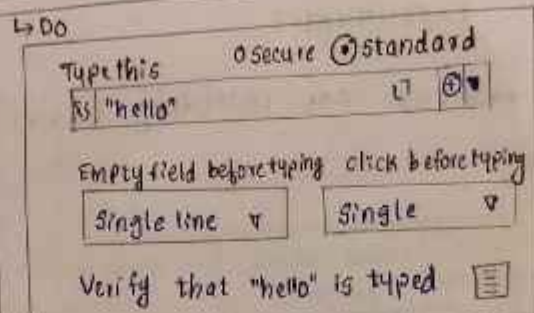 ↳ DO
Type this o secure ⊙ standard
"hello"
Empty field before typing click before typing
Single line ▽ Single ▽
Verify that "hello" is typed